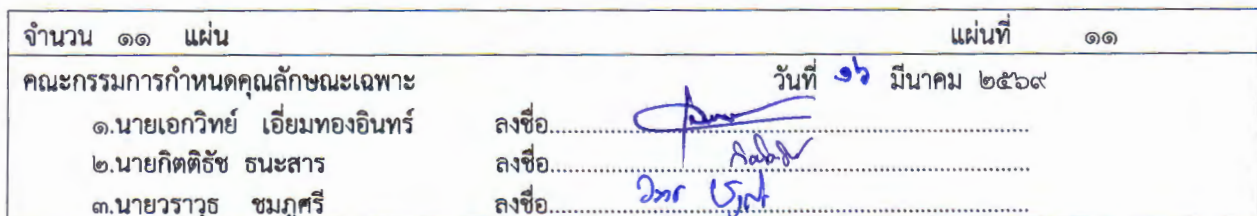 จำนวน ๑๑ แผ่น แผ่นที่ ๑๑
คณะกรรมการกำหนดคุณลักษณะเฉพาะ วันที่ ๑๖ มีนาคม ๒๕๖๙
๑.นายเอกวิทย์ เอี่ยมทองอินทร์ ลงชื่อ
๒.นายกิตติธัช ธนะสาร ลงชื่อ
๓.นายวราวุธ ชมภูศรี ลงชื่อ